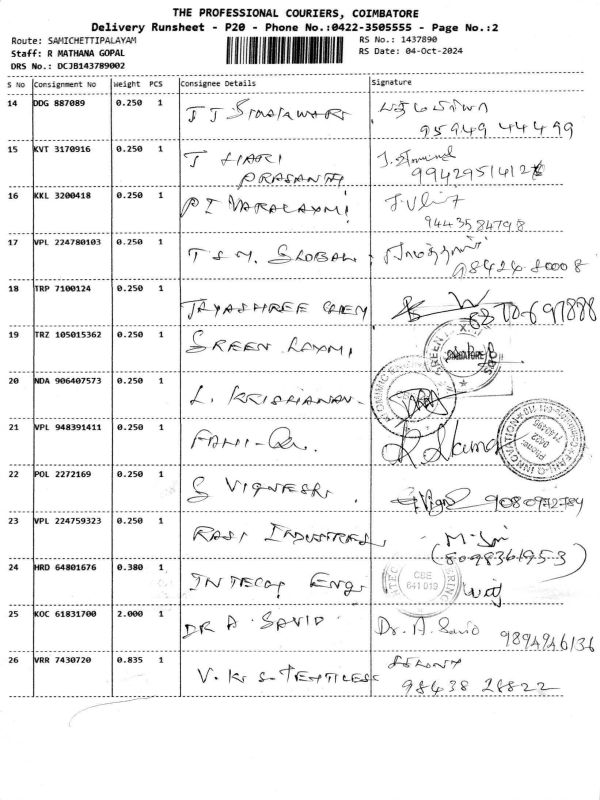 THE PROFESSIONAL COURIERS, COIMBATORE
Delivery Runsheet - P20 - Phone No.:0422-3505555 - Page No.:2
Route: SAMICHETTIPALAYAM
RS No.: 1437890
Staff: R MATHANA GOPAL
RS Date: 04-Oct-2024
DRS No.: DCJB143789002
S No Consignment No Weight PCS Consignee Details Signature
14 DDG 887089 0.250 1 J J
95949 44499
15 KVT 3170916 0.250 1 J HARI
PRASANTH
16 KKL 3200418 0.250 1 P I VARALAXMI
9443584798
17 VPL 224780103 0.250 1 T S M. GLOBAL
98424 80008
18 TRP 7100124 0.250 1 JAYASHREE CHEM
19 TRZ 105015362 0.250 1 SREEN LAXMI
20 NDA 906407573 0.250 1 L. KRISHANAN
21 VPL 948391411 0.250 1 FAHI-Qu. R. Kumar
22 POL 2272169 0.250 1 S VIGNESRI. Vigns 9080972784
23 VPL 224759323 0.250 1 RASI INDUSTRIES
(8098361953)
24 HRD 64801676 0.380 1 INTECH ENG
CBE
641 019
25 KOC 61831700 2.000 1 DR A. SAVIO. Dr. A. Savio
9894946136
26 VRR 7430720 0.835 1 V. K. S TEXTILESS
98438 28822